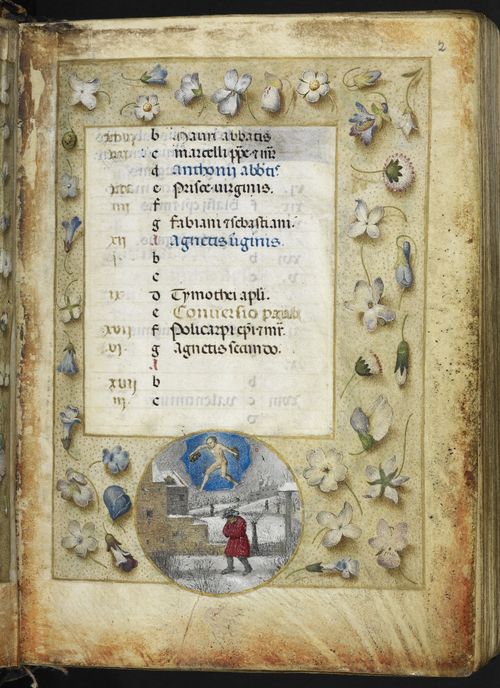 2
b Mauri abbatis
c marcelli ppe ⁊ mr̄
d Anthonii abbis
e Prisce virginis.
iiii f
g fabiani ⁊ sebastiani.
xii A Agnetis v̄ginis.
i. b
c
ix d Tymothei apli.
e Conversio pauli
xvii f Policarpi ep̄i ⁊ mr̄
vi. g Agnetis secundo.
A
xiiii b
iii. c